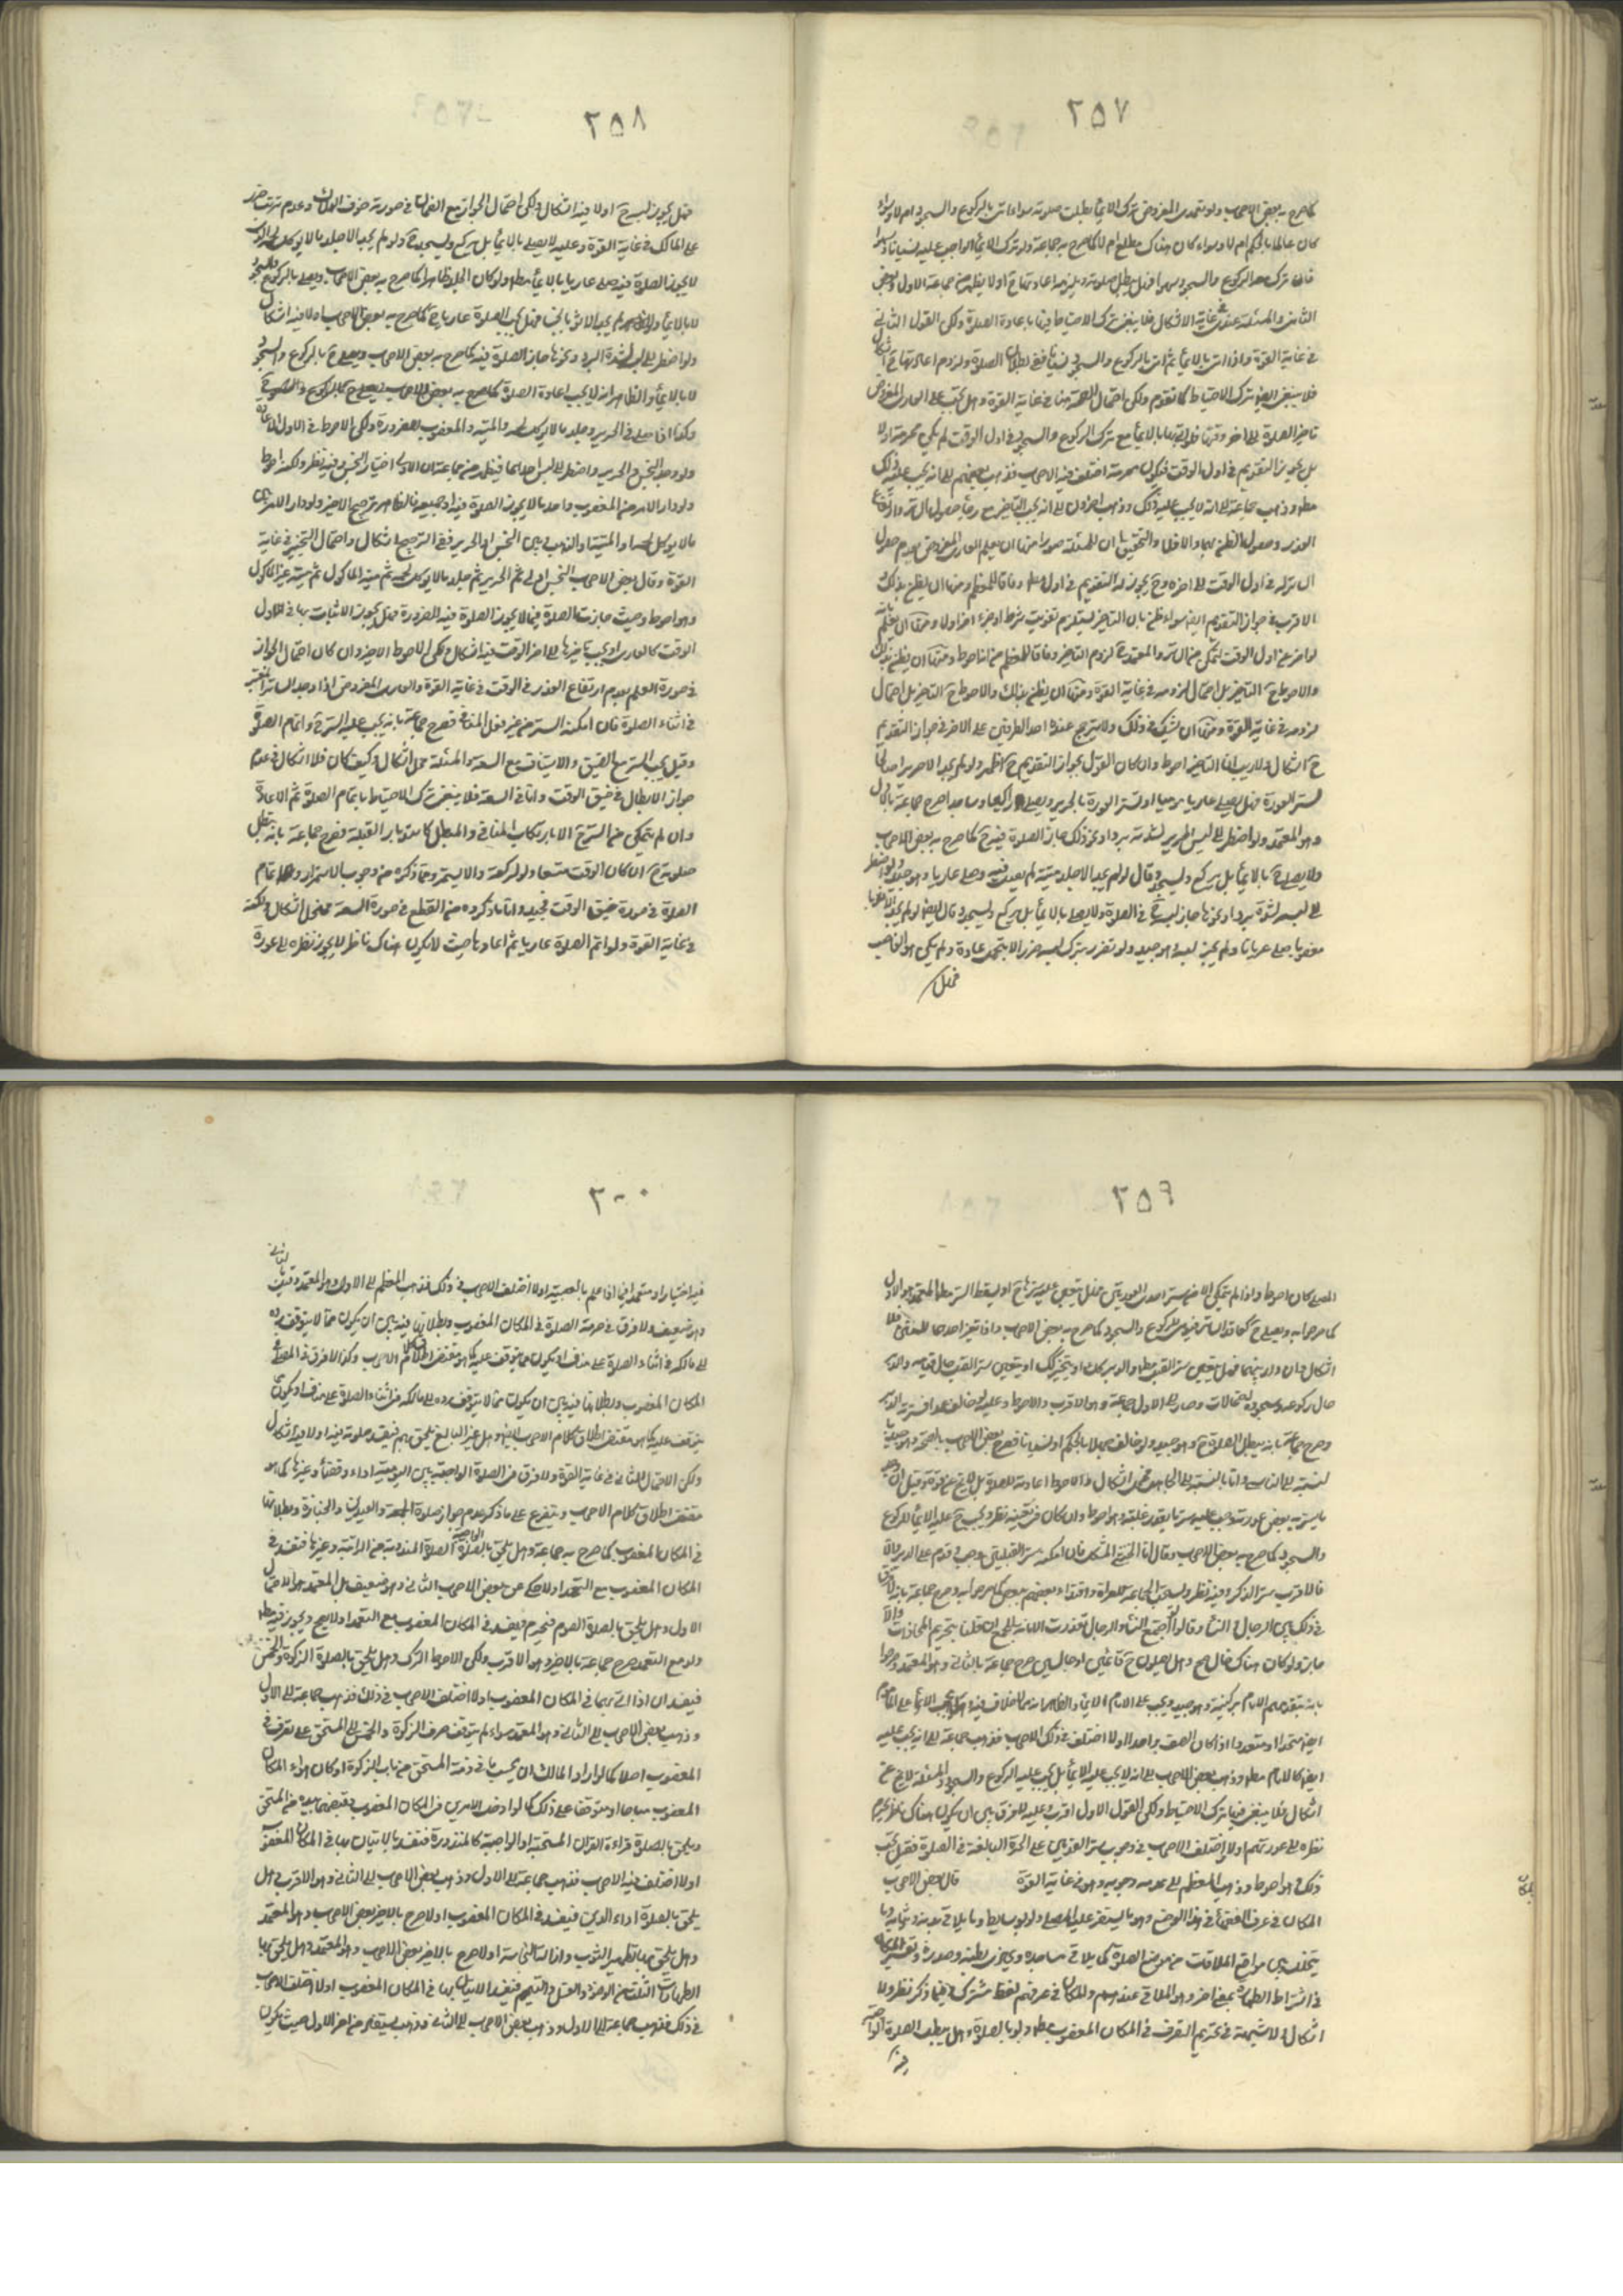 ٢٥٧
كما صرح به بعض الاصحاب ولو تعمد المفروض ترك الايماء بطلت صلوته سواء اتى بالركوع والسجود ام لا وسواء
كان عالما بالحكم ام لا وسواء كان هناك مطلع ام لا كما صرح به جماعة ولو ترك الايماء الواجب عليه نسيانا
فان ترك معه الركوع والسجود سهوا فهل يبطل صلوته ويلزمه اعادتها ح او لا يظهر من جماعة الاول وبعض
الثانى والمسئلة عندى فى غاية الاشكال فلا ينبغى ترك الاحتياط فيها باعادة الصلوة ولكن القول الثانى
فى غاية القوة واذا اتى بالايماء ثم اتى بالركوع والسجود نسيانا ففى بطلان الصلوة ولزوم اعادتها ح اشكال
فلا ينبغى ترك الاحتياط كما تقدم ولكن احتمال الصحة هنا فى غاية القوة وهل يجب على العارى المفروض
تاخير الصلوة الى اخر وقتها
بل يجوز التقديم فى اول الوقت
مطلقا وذهب جماعة الى انه لا يجب عليه ذلك وذهب اخرون الى انه يجب التاخير مع رجاء حصول الساتر
العذر وحصول الظن بهما والا فلا والتحقيق ان للمسئلة صورا منها ان يعلم العارى المفروض بعدم حصول
الساتر له فى اول الوقت الى اخره وح يجوز له التقديم فى اول الوقت وفاقا للمعظم ومنها ان يظن بذلك
الاقرب جواز التقديم ايضا سواء ظن بان التاخير يستلزم تفويت شرط او جزء اخر او لا ومنها ان يعلم
لو اخر عن اول الوقت لتمكن من الساتر والمعتمد ح لزوم التاخير وفاقا للمعظم ومنها ان يظن بذلك
والاحوط ح التاخير بل احتمال لزومه فى غاية القوة
لزومه فى غاية القوة ومنها ان يشك فى ذلك ولا يترجح عنده احد الطرفين على الاخر فى جواز التقديم
ح اشكال ولا ريب ان التاخير احوط وان كان القول بجواز التقديم ح اظهر ولو لم يجد الا حريرا
لستر العورة فهل يصلى عاريا موميا او يستر العورة بالحرير ويصلى راكعا وساجدا صرح جماعة بالاول
وهو المعتمد ولو اضطر الى لبس الحرير لشدة برد او نحو ذلك جاز الصلوة فيه ح كما صرح به بعض الاصحاب
ولا يصلى ح بالايماء بل يركع ويسجد وقال لو لم يجد الا جلد ميتة لم يصل فيه وصلى عاريا وهو جيد ولو اضطر
الى لبسه لشدة برد او نحوها جاز لبسه ح فى الصلوة ولا يصلى بالايماء بل يركع ويسجد وقال ايضا لو لم يجد الا ثوبا
مغصوبا صلى عريانا ولم يجز لبسه وهو جيد ولو تضرر بترك لبسه ضررا لا يتحمل عادة ولم يكن هو الغاصب
فهل
٢٥٨
فهل يجوز لبسه ح او لا فيه اشكال ولكن احتمال الجواز مع الضمان فى صورة خوف الهلاك وعدم ترتب ضرر
على المالك فى غاية القوة وعليه لا يصلى بالايماء بل يركع ويسجد ح ولو لم يجد الا جلد ما لا يؤكل لحمه
لا يجوز الصلوة فيه صلى عاريا بالايماء مطلقا ولو كان الجلد طاهرا كما صرح به بعض الاصحاب ويصلى بالركوع والسجود
لا بالايماء ولو لم يجد الا ثوبا نجسا فهل يجب الصلوة عاريا ح كما صرح به بعض الاصحاب او لا فيه اشكال
ولو اضطر الى لبسه لشدة البرد ونحوها جاز الصلوة فيه كما صرح به بعض الاصحاب ويصلى ح بالركوع والسجود
لا بالايماء والظاهر انه لا يجب اعادة الصلوة كما صرح به بعض الاصحاب
وكذا اذا صلى فى الحرير وجلد ما لا يؤكل لحمه والميتة والمغصوب للضرورة ولكن الاحوط فى الاول الاعادة
ولو وجد النجس والحرير واضطر الى لبس احدهما فيظهر من جماعة ان الاولى اختيار النجس وفيه نظر ولكنه احوط
ولو دار الامر بين المغصوب واحد ما لا يجوز الصلوة فيه او جميعه فالظاهر ترجيح الاخير ولو دار الامر بين
ما لا يؤكل لحمه او الميتة او الذهب وبين النجس او الحرير ففى الترجيح اشكال واحتمال التخيير فى غاية
القوة وقال بعض الاصحاب النجس اولى ثم الحرير ثم جلد ما لا يؤكل لحمه ثم ميتة الماكول ثم ميتة غير الماكول
وهو احوط وحيث جازت الصلوة فيما لا يجوز الصلوة فيه للضرورة فهل يجوز الاتيان بها فى اول
الوقت كالعارى او يجب تاخيرها الى اخر الوقت فيه اشكال ولكن الاحوط الاخير وان كان احتمال الجواز
فى صورة العلم بعدم ارتفاع العذر فى الوقت فى غاية القوة والعارى المفروض اذا وجد الساتر المعتبر
فى اثناء الصلوة فان امكنه الستر من غير فعل المنافى فصرح جماعة بانه يجب عليه الستر ح واتمام الصلوة
وقيل يجب الستر مع الضيق والاستيناف مع السعة والمسئلة محل اشكال وكيف كان فلا اشكال فى عدم
جواز الابطال فى ضيق الوقت واما فى السعة فلا ينبغى ترك الاحتياط باتمام الصلوة ثم الاعادة
وان لم يتمكن من الستر ح الا بارتكاب المنافى والمبطل كاستدبار القبلة فصرح جماعة بانه يبطل
صلوته ح ان كان الوقت متسعا ولو لركعة والا يستمر وما ذكروه من وجوب الاستمرار واتمام
الصلوة فى صورة ضيق الوقت فجيد واما ما ذكروه من القطع فى صورة السعة فمحل اشكال ولكنه
فى غاية القوة ولو اتم الصلوة عاريا ثم اعادها حيث لا يكون هناك ناظر لا يجوز نظره الى عورة
٢٥٩
المصلى كان احوط واذا لم يتمكن الا من ستر احدى العورتين فهل يتعين عليه سترها ح او يسقط الستر مطلقا المعتمد هو الاول
كما صرحوا به ويصلى ح كفاقد الساتر فيومى للركوع والسجود كما صرح به بعض الاصحاب
اشكال
حال ركوعه وسجوده احتمالات وصار الى الاول جماعة وهو الاقرب والاحوط وعليه لو خالف عمدا فستر به الدبر
وصرح جماعة بانه يبطل الصلوة ح وهو جيد ولو خالف جهلا بالحكم او نسيانا فصرح بعض الاصحاب بالصحة وهو جيد
بالنسبة الى الناسى واما بالنسبة الى الجاهل فمحل اشكال فالاحوط اعادته للصلوة
ما يستر به بعض عورته وجب عليه ستر ما يقدر عليه وهو احوط وان كان فى تعينه نظر ويجب ح عليه الايماء للركوع
والسجود كما صرح به بعض الاصحاب وقال اما الخنثى المشكل فان امكنه ستر القبلين وجب وقدم على الدبر والا
فالاقرب ستر الذكر وفيه نظر ويستحب الجماعة للعراة
فى ذلك بين الرجال والنساء وقالوا لو اجتمع النساء والرجال
جاز ولو كان هناك حائل صح وهل يصلون ح قائمين او جالسين صرح جماعة بالثانى وهو المعتمد وصرحوا
بانه يتقدمهم الامام بركبتيه وهو جيد ويجب على الامام الايماء والظاهر انه مما لا خلاف فيه
ايضا متحدا او متعددا اذا كان الصف واحدا او لا اختلف فى ذلك الاصحاب فذهب جماعة الى انه يجب عليه
ايضا كالامام مطلقا وذهب بعض الاصحاب الى انه لا يجب عليه الايماء بل يجب عليه الركوع والسجود والمسئلة لا يخ عن
اشكال فلا ينبغى فيها ترك الاحتياط ولكن القول الاول اقرب وعليه لا فرق بين ان يكون هناك ناظر يحرم
نظره الى عورتهم او لا واختلف الاصحاب فى وجوب ستر القدمين على الحرة البالغة فى الصلوة فقيل يجب
ذلك وهو احوط وذهب المعظم الى عدم وجوبه وهو فى غاية القوة قال بعض الاصحاب
المكان فى عرف الفقهاء فى هذا الموضع وهو ما يستقر عليه المصلى ولو بوسايط وما يلاقى بدنه وثيابه وما
يتخلل بين مواضع الملاقات من موضع الصلوة كما يلاقى مساجده ويحاذى بطنه وصدره وتفسير المكان
فى اشتراط الطهارة بمعنى اخر وهو الملاقى عندهم والمكان فى عرفهم لفظ مشترك وفيما ذكر نظر ولا
اشكال ولا شبهة فى تحريم التصرف فى المكان المغصوب مطلقا ولو بالصلوة وهل يبطل الصلوة الواجبة
فيه
٢٦٠
فيه اختيارا ومتعمدا فيما اذا علم بالغصبية او لا اختلف الاصحاب فى ذلك فذهب المعظم الى الاول وهو المعتمد وقيل بالثانى
وهو ضعيف ولا فرق فى حرمة الصلوة فى المكان المغصوب وبطلانها فيه بين ان يكون مما لا يتوقف رده
الى مالكه فى اثناء الصلوة على مناف او يكون مما يتوقف عليه كما هو مقتضى اطلاق كلام الاصحاب وكذا لا فرق فى المصلى فى
المكان المغصوب وبطلانها فيه بين ان يكون مما لا يتوقف رده الى مالكه فى اثناء الصلوة على مناف او يكون
يتوقف عليه كما هو مقتضى اطلاق كلام الاصحاب ايضا وهل غير البالغ يلحق بهم فيفسد صلوته فيه او لا فيه اشكال
ولكن الاحتمال الثانى فى غاية القوة ولا فرق فى الصلوة الواجبة بين اليومية اداء وقضاء وغيرها كما هو
مقتضى اطلاق كلام الاصحاب ويتفرع على ما ذكر عدم جواز صلوة الجمعة والعيدين والجنازة وبطلانها
فى المكان المغصوب كما صرح به جماعة وهل يلحق بالصلوة الواجبة الصلوة المندوبة من الراتبة وغيرها فتفسد فى
المكان المغصوب مع التعمد او لا حكى عن بعض الاصحاب الثانى وهو ضعيف بل المعتمد هو الاحتمال
الاول وهل يلحق بالصلوة الصوم فيحرم ويفسد فى المكان المغصوب مع التعمد او لا بل يصح ويجوز فيه مطلقا
ولو مع التعمد صرح جماعة بالاخير وهو الاقرب ولكن الاحوط الترك وهل يلحق بالصلوة الزكوة والخمس
فيفسدان اذا اتى بهما فى المكان المغصوب او لا اختلف الاصحاب فى ذلك فذهب جماعة الى الاول
وذهب بعض الاصحاب الى الثانى وهو المعتمد سواء لم يتوقف صرف الزكوة والخمس الى المستحق على تصرف فى
المغصوب اصلا كما لو اراد المالك ان يحسب ما فى ذمة المستحق من باب الزكوة او كان هواء المكان
المغصوب مباحا او متوقفا على ذلك كما لو ادخل الامرين فى المكان المغصوب فقبضهما بيده من المستحق
ويلحق بالصلوة قراءة القران المستحبة او الواجبة كالمنذورة فتفسد بالاتيان بها فى المكان المغصوب
او لا اختلف فيه الاصحاب فذهب جماعة الى الاول وذهب بعض الاصحاب الى الثانى وهو الاقرب وهل
يلحق بالصلوة اداء الدين فيفسد فى المكان المغصوب او لا صرح بالاخير بعض الاصحاب وهو المعتمد
وهل يلحق بها تطهير الثوب وازالة النجاسة او لا صرح بالاخير بعض الاصحاب وهو المعتمد وهل يلحق بها
الطهارات الثلث من الوضوء والغسل والتيمم فيفسد الاتيان بها فى المكان المغصوب او لا اختلف الاصحاب
فى ذلك فذهب جماعة الى الاول وذهب بعض الاصحاب الى الثانى